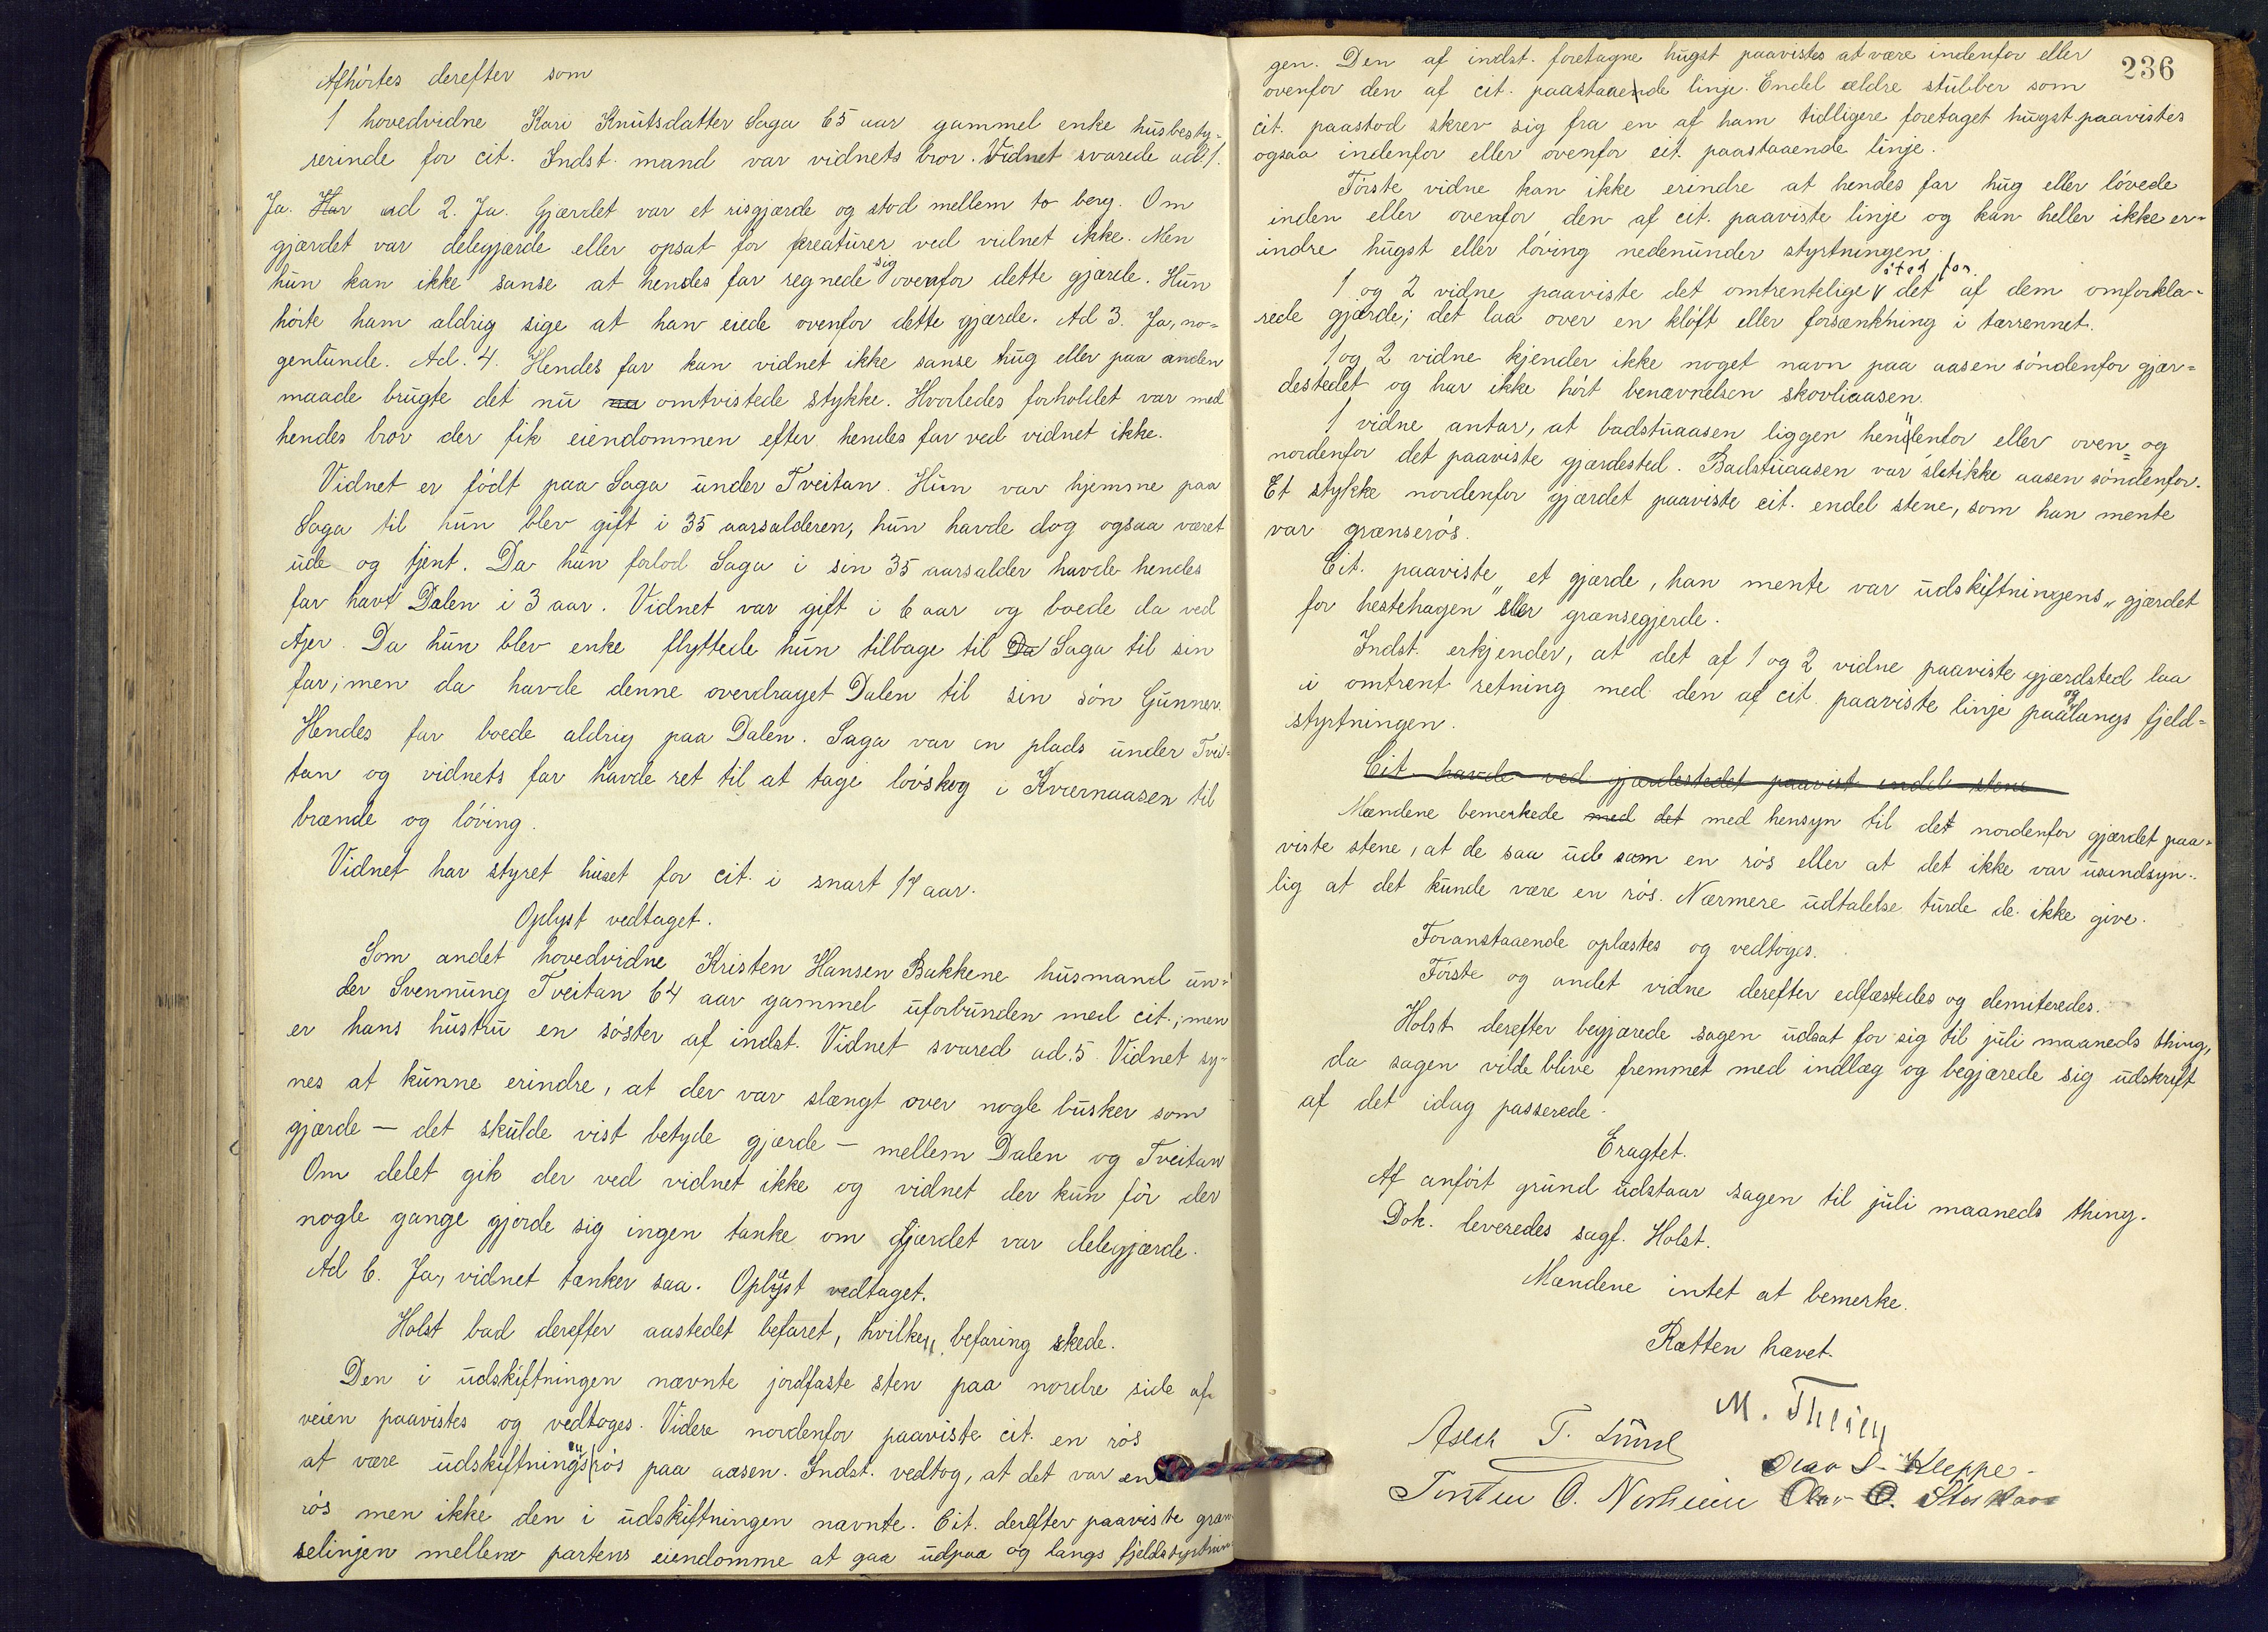 Afhörtes derefter som
1 hovedvidne Kari Knutsdatter Saga 65 aar gammel enke husbesty-
rerinde for cit. Indst. mand var vidnets bror. Vidnet svarede ad 1.
Ja. Har ad 2. Ja. Gjærdet var et risgjærde og stod mellem to berg. Om
gjærdet var delegjærde eller opsat for kreaturer ved vidnet ikke. Men
hun kan ikke sanse at hendes far regnede sig ovenfor dette gjærde. Hun
hörte ham aldrig sige at han eiede ovenfor dette gjærde. Ad 3. Ja, no-
genlunde. Ad. 4. Hendes far kan vidnet ikke sanse hug eller paa anden
maade brugte det nu omtvistede stykke. Hvorledes forholdet var med
hendes bror der fik eiendommen efter hendes far ved vidnet ikke.
Vidnet er födt paa Saga under Tveitan. Hun var hjemme paa
Saga til hun blev gift i 35 aarsalderen, hun havde dog ogsaa været
ude og tjent. Da hun forlod Saga i sin 35 aarsalder havde hendes
far havt Dalen i 3 aar. Vidnet var gift i 6 aar og boede da ved
Ajer. Da hun blev enke flyttede hun tilbage til Da Saga til sin
far; men da havde denne overdraget Dalen til sin sön Gunner.
Hendes far boede aldrig paa Dalen. Saga var en plads under Tvei-
tan og vidnets far havde ret til at tage lövskog i Kvernaasen til
brænde og löving.
Vidnet har styret huset for cit. i snart 17 aar.
Oplyst vedtaget.
Som andet hovedvidne Kristen Hansen Bakkene husmand un-
der Svennung Tveitan 64 aar gammel uforbunden med cit.; men
er hans hustru en söster af indst. Vidnet svared ad. 5. Vidnet sy-
nes at kunne erindre, at der var slængt over nogle busker som
gjærde – det skulde vist betyde gjærde – mellem Dalen og Tveitan
Om delet gik der ved vidnet ikke og vidnet der kun för der
nogle gange gjorde sig ingen tanke om gjærdet var delegjærde.
Ad 6. Ja, vidnet tænker saa. Oplæst vedtaget.
Holst bad derefter aastedet befaret, hvilken befaring skede.
Den i udskiftningen nævnte jordfaste sten paa nordre side af
veien paavistes og vedtoges. Videre nordenfor paaviste cit. en rös
at være udskiftningens rös paa aasen. Indst. vedtog, at det var en
rös men ikke den i udskiftningen nævnte. Cit. derefter paaviste græn-
selinjen mellem partens eiendomme at gaa udpaa og langs fjeldstyrtnin-
236
gen. Den af indst. foretagne hugst paavistes at være indenfor eller
ovenfor den af cit. paastaaende linje. Endel ældre stubber som
cit. paastod skrev sig fra en af ham tidligere foretaget hugst paavistes
ogsaa indenfor eller ovenfor cit. paastaaende linje.
Förste vidne kan ikke erindre at hendes far hug eller lövede
inden eller ovenfor den af cit. paaviste linje og kan heller ikke er-
indre hugst eller löving nedenunder styrtningen.
1 og 2 vidne paaviste det omtrentelige sted for det af dem omforkla-
rede gjærde; det laa over en klöft eller forsænkning i tærrennet.
1 og 2 vidne kjender ikke noget navn paa aasen söndenfor gjær-
destedet og har ikke hört benævnelsen skovliaasen.
1 vidne antar, at badstuaasen liggen hendenfor eller oven- og
nordenfor det paaviste gjærdested. Badstuaasen var sletikke aasen söndenfor.
Et stykke nordenfor gjærdet paaviste cit. endel stene, som han mente
var grænserös.
Cit. paaviste et gjærde, han mente var udskiftningens „gjærdet
for hestehagen” eller grænsegjerde.
Indst. erkjender, at det af 1 og 2 vidne paaviste gjærdsted laa
i omtrent retning med den af cit. paaviste linje paa og langs fjeld-
styrtningen.
Cit. havde ved gjærdestedet paavist endel stene
Mændene bemerkede med det med hensyn til det nordenfor gjærdet paa-
viste stene, at de saa ud som en rös eller at det ikke var usandsyn-
lig at det kunde være en rös. Nærmere udtalelse turde de ikke give.
Foranstaaende oplæstes og vedtoges.
Förste og andet vidne derefter edfæstedes og demiteredes.
Holst derefter begjærede sagen udsat for sig til juli maaneds thing,
da sagen vilde blive fremmet med indlæg og begjærede sig udskrift
af det idag passerede.
Eragtet.
Af anfört grund udstaar sagen til juli maaneds thing.
Dok. leveredes sagf. Holst.
Mændene intet at bemerke.
Rætten hævet.
M.
Aslak T. Lund
Olav S. Kleppe
O. Olav O.